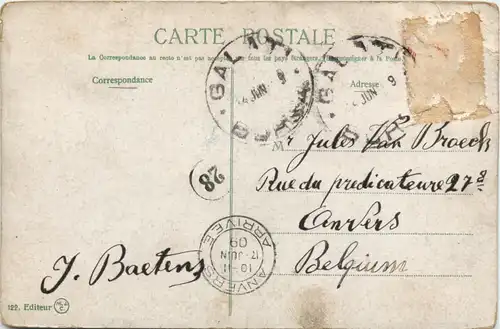 CARTE POSTALE
La Correspondance au recto n'est pas
tous les pays étrangers.
Correspondance
Adresse
GALATI
JUN 9
GALAT
JUN 9
Mr Jules Van Broeck
Rue du predicateure 27
Anvers
Belgium
28
ANVERS
10-11
17 JUIN
09
ARRIVÉE
J. Baetens
122. Editeur